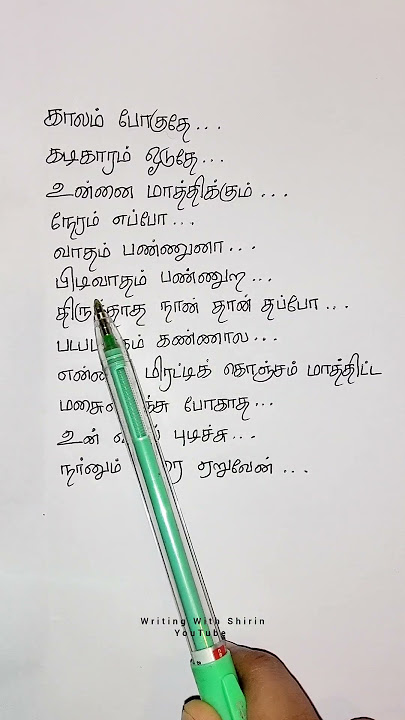 காலம் போகுதே...
கடிகாரம் ஓடுதே...
உன்னை மாத்திக்கும்...
நேரம் எப்போ...
வாதம் பண்ணுனா...
பிடிவாதம் பண்ணுற...
நான் தான் தப்போ...
கண்ணால...
மிரட்டிக் கொஞ்சம் மாத்திட்ட
போகாத...
உன் புடிச்சு...
நானும் ஏறுவேன்...
Writing With Shirin
YouTube